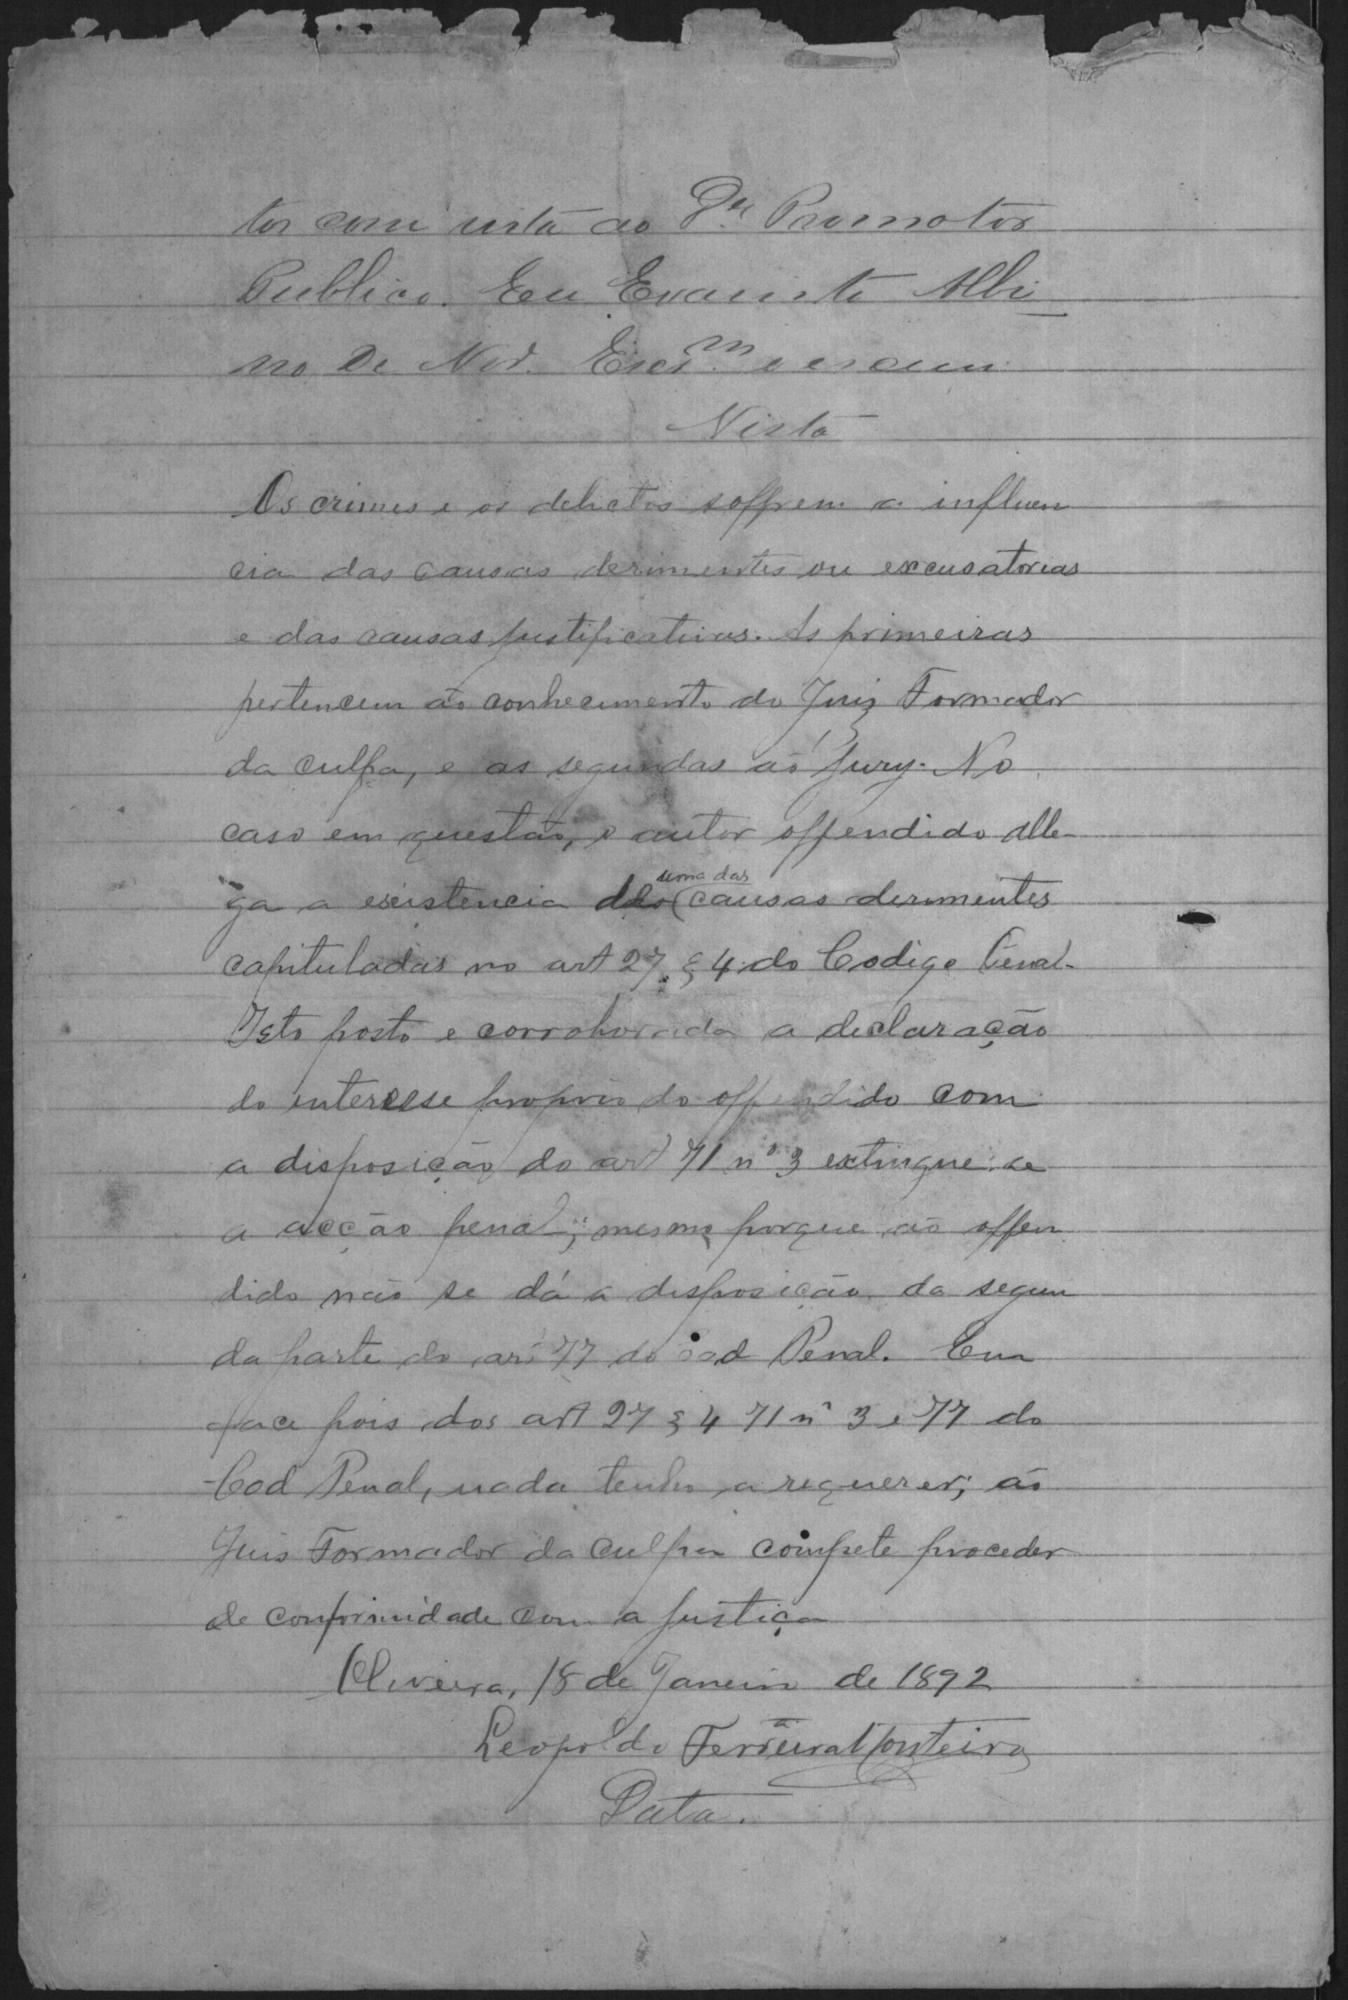 tos com vista ao Dr. Promotor
Publico. Eu Evaristo Albi
no de Escrm. o escrevi
Vista
Os crimes e os delictos soffrem a influen
cia das causas derimentes ou excusatorias
e das causas justificativas. As primeiras
pertencem ao conhecimento do Juiz Formador
da culpa, e as segundas ao Jury. No
caso em questão, o autor offendido alle-
ga a existencia de uma das causas derimentes
capituladas no art 27 § 4 do Codigo Penal.
Isto posto e corroborada a declaração
do interesse proprio do offendido com
a disposição do art 71 nº 3 extingue se
a acção penal; mesmo porque ao offen
dido não se dá a disposição da segun
da parte do art 77 do Cod Penal. Em
face pois dos art 27 § 4 71 nº 3 e 77 do
Cod Penal, nada tenho a requerer; ao
Juis Formador da culpa compete proceder
de conformidade com a justiça
Oliveira, 18 de Janeiro de 1892
Leopoldo Ferreira Monteiro
Data.